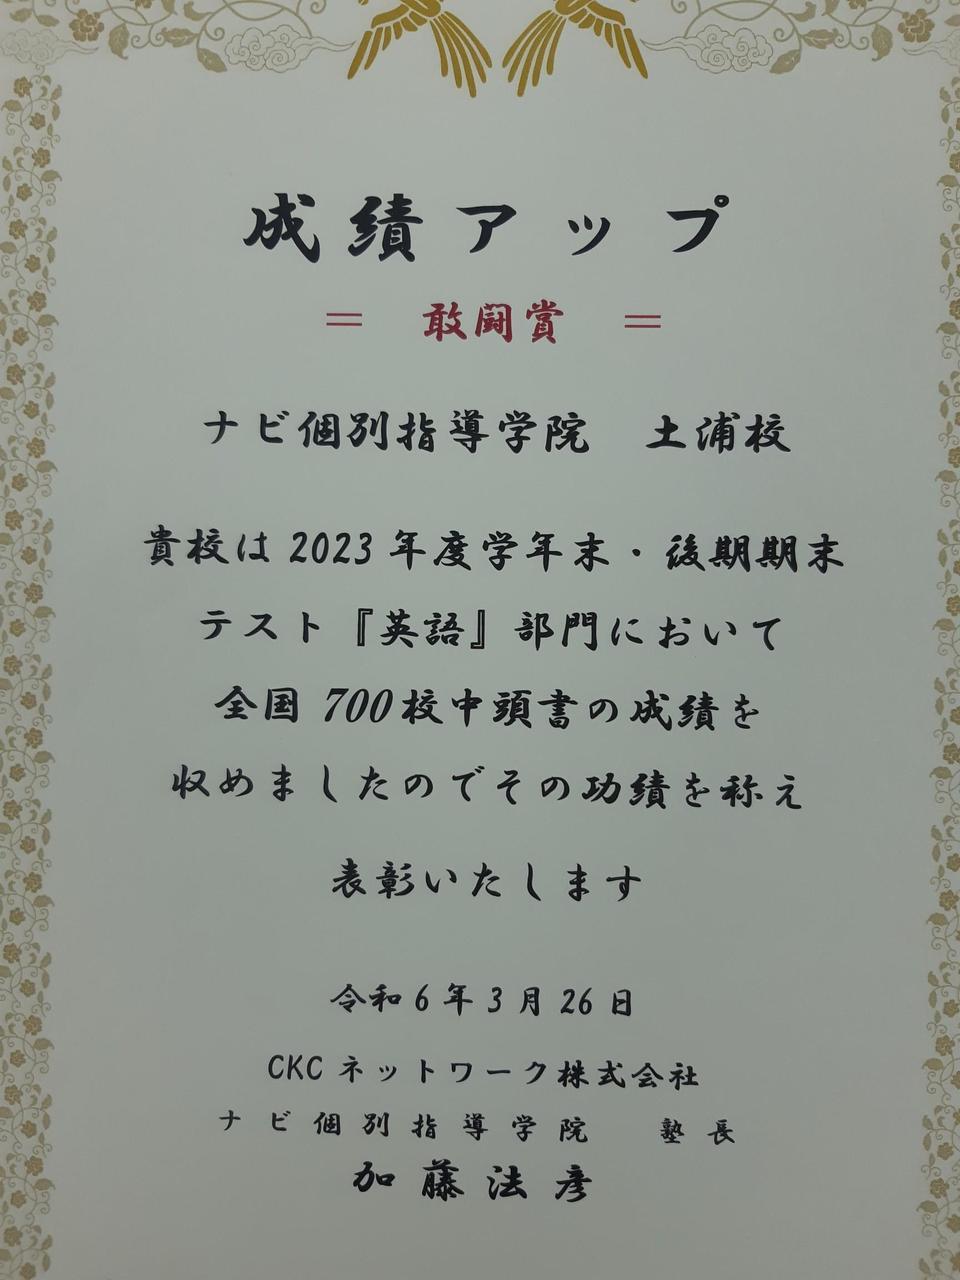 成績アップ
＝ 敢闘賞 ＝
ナビ個別指導学院 土浦校
貴校は2023年度学年末・後期期末
テスト『英語』部門において
全国700校中頭書の成績を
収めましたのでその功績を称え
表彰いたします
令和6年3月26日
CKCネットワーク株式会社
ナビ個別指導学院 塾長
加藤法彦